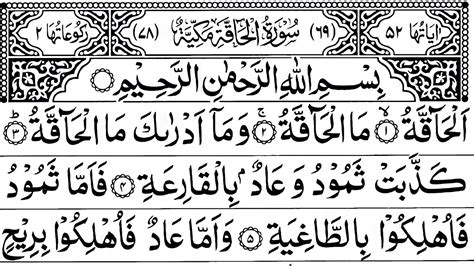 اٰيَاتُهَا ٥٢ (٦٩) سُوْرَةُ الْحَاقَّةِ مَكِّيَّةٌ (٧٨) رُكُوْعَاتُهَا ٢
بِسْمِ اللّٰهِ الرَّحْمٰنِ الرَّحِيْمِ
اَلْحَآقَّةُ ۙ﴿١﴾ مَا الْحَآقَّةُ ۚ﴿٢﴾ وَمَاۤ اَدْرٰىكَ مَا الْحَآقَّةُ ؕ﴿٣﴾
كَذَّبَتْ ثَمُوْدُ وَعَادٌۢ بِالْقَارِعَةِ ﴿٤﴾ فَاَمَّا ثَمُوْدُ
فَاُهْلِكُوْا بِالطَّاغِيَةِ ﴿٥﴾ وَاَمَّا عَادٌ فَاُهْلِكُوْا بِرِيْحٍ